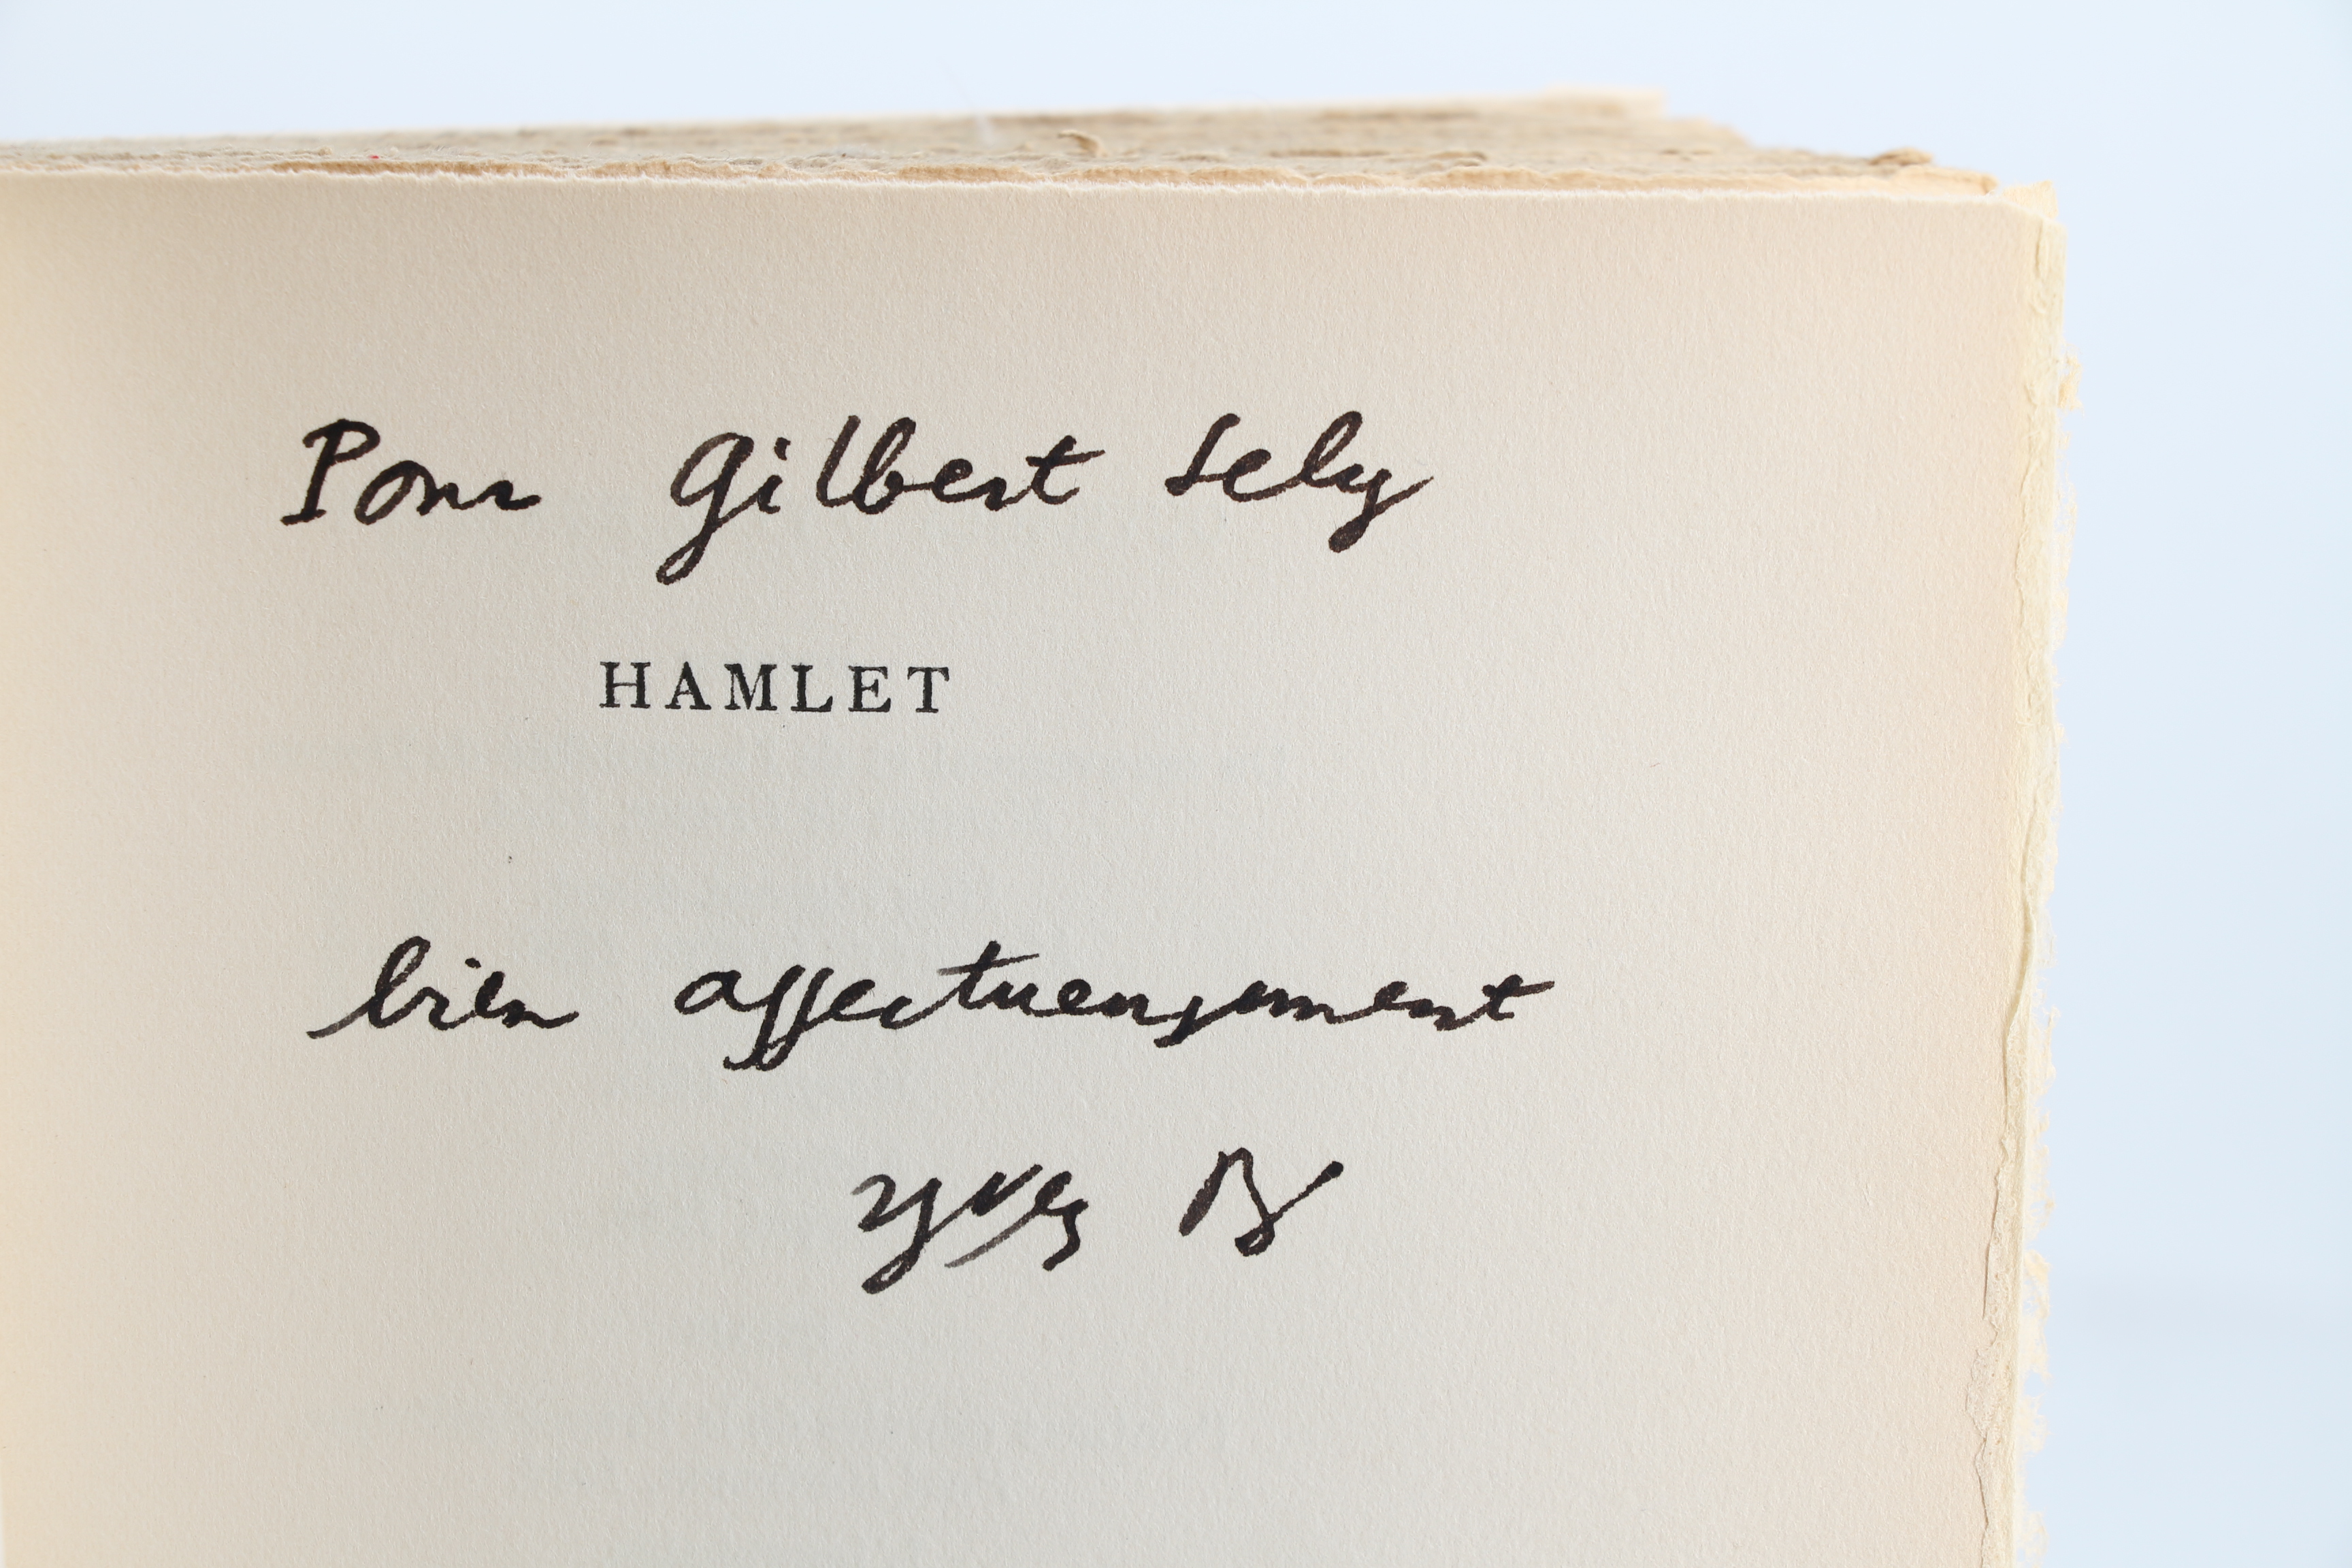 Pour Gilbert Sely
HAMLET
bien affectueusement
Yves B